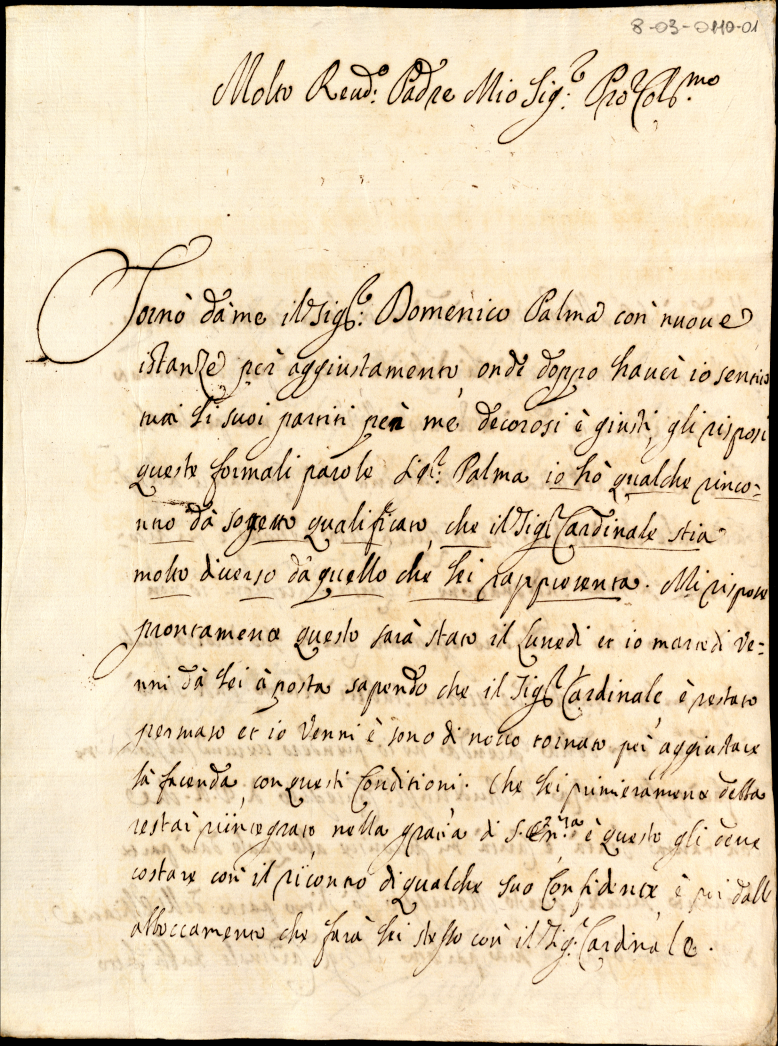 8-03-0110-01
Molto Reud: Padre Mio Sig:r Pro Col:mo
Tornò dà me il Sig:r Domenico Palma con nuoue
istanze per aggiustamento, onde doppo hauer io sentito
tutti li suoi partiti per me decorosi è giusti, gli risposi
queste formali parole Sig:r Palma io hò qualche rinco=
ntro dà sogetto qualificato, che il Sig:r Cardinale stia
molto diverso dà quello che lei rappresenta. Mi rispose
prontamente questo sarà stato il Lunedi et io martedi ve=
nni dà lei à posta sapendo che il Sig:r Cardinale è restato
permaso et io venni è sono di nouo tornato per aggiustare
la facenda con questi Conditioni. Che lei primieramente della
restai riintegrato nella gratia di S. è questo gli deue
costare con il riscontro di qualche suo Confidente è poi dall
abboccamento che farà lei stesso con il Sig:r Cardinale.